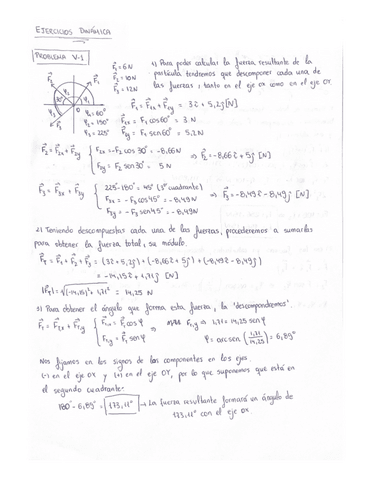 EJERCICIOS DINÁMICA
PROBLEMA V-1
F₁ = 6 N
F₂ = 10 N
F₃ = 12 N
φ₁ = 60°
φ₂ = 150°
φ₃ = 225°
1) Para poder calcular la fuerza resultante de la
partícula tendremos que descomponer cada una de
las fuerzas, tanto en el eje OX como en el eje OY.
F⃗₁ = F⃗₁ₓ + F⃗₁y = 3i + 5,2j [N]
F₁ₓ = F₁ cos 60° = 3 N
F₁y = F₁ sen 60° = 5,2 N
F⃗₂ = F⃗₂ₓ + F⃗₂y { F₂ₓ = -F₂ cos 30° = -8,66 N ⇒ F⃗₂ = -8,66i + 5j [N]
F₂y = F₂ sen 30° = 5 N
F⃗₃ = F⃗₃ₓ + F⃗₃y { 225 - 180° = 45° (3º cuadrante)
F₃ₓ = -F₃ cos 45° = -8,49 N ⇒ F⃗₃ = -8,49i - 8,49j [N]
F₃y = -F₃ sen 45° = -8,49 N
2) Teniendo descompuestas cada una de las fuerzas, procederemos a sumarlas
para obtener la fuerza total, su módulo.
F⃗T = F⃗₁ + F⃗₂ + F⃗₃ = (3i + 5,2j) + (-8,66i + 5j) + (-8,49i - 8,49j)
= -14,15i + 1,71j [N]
|F⃗T| = √(-14,15)² + 1,71² = 14,25 N
3) Para obtener el ángulo que forma esta fuerza, la 'descompondremos'.
⇒ 1,71 = 14,25 sen φ
φ = arcsen (1,71/14,25) = 6,89°
Nos fijamos en los signos de las componentes en los ejes.
(-) en el eje OX y (+) en el eje OY, por lo que suponemos que está en
el segundo cuadrante:
180° - 6,89° = 173,11° → La fuerza resultante formará un ángulo de
173,11° con el eje OX